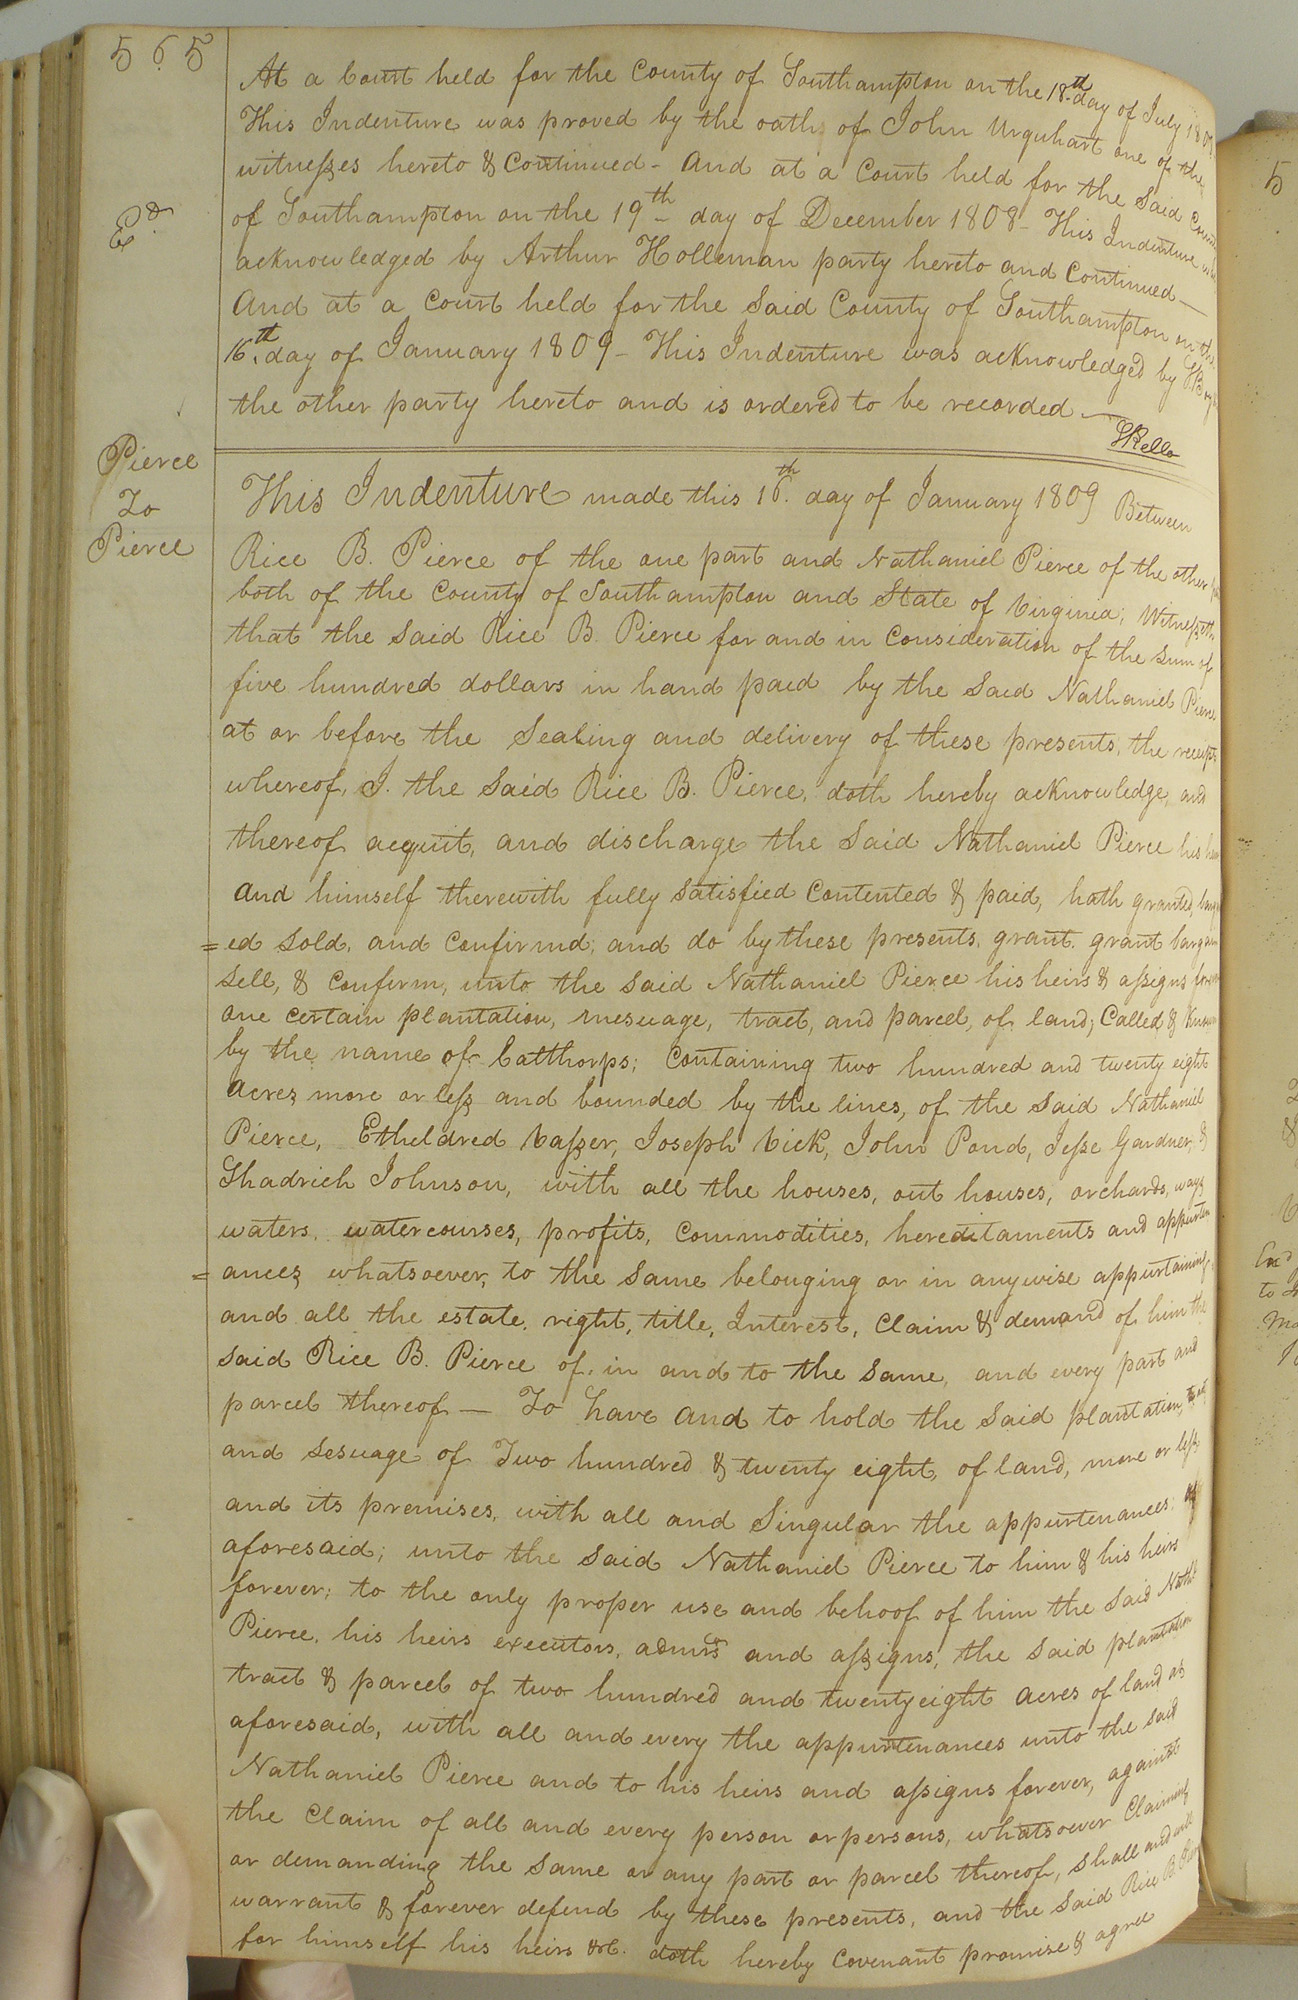 565
At a Court held for the County of Southampton on the 18th day of July 180
This Indenture was proved by the oath of John Urquhart one of the
witnesses hereto & Continued - And at a Court held for the Said
of Southampton on the 19th day of December 1808 - This Indenture
acknowledged by Arthur Holleman party hereto and Continued —
And at a Court held for the Said County of Southampton on the
16th day of January 1809 - This Indenture was acknowledged by
the other party hereto and is ordered to be recorded —
SKello
Exd
Pierce
To
Pierce
This Indenture made this 16th day of January 1809 Between
Rice B. Pierce of the one part and Nathaniel Pierce of the other
both of the County of Southampton and State of Virginea; Witnesseth
that the Said Rice B. Pierce for and in Consideration of the Sum of
five hundred dollars in hand paid by the Said Nathaniel Pierce
at or before the Sealing and delivery of these presents, the receipt
whereof, I. the Said Rice B. Pierce, doth hereby acknowledge, and
thereof acquit, and discharge the Said Nathaniel Pierce his
And himself therewith fully Satisfied Contented & paid, hath granted,
=ed Sold, and Confirmd; and do by these presents, grant. grant bargain
Sell, & Confirm, unto the Said Nathaniel Pierce his heirs & assigns
one Certain plantation, mesuage, tract, and parcel, of land; Called & Known
by the name of Calthorps; Containing two hundred and twenty eight
Acres more or less and bounded by the lines, of the Said Nathaniel
Pierce, Etheldred Vasser, Joseph Vick, John Pond, Jesse Gardner, &
Shadrich Johnson, with all the houses, out houses, orchards, ways
waters, watercourses, profits, Commodities, hereditaments and appurten
=ances whatsoever, to the Same belonging or in anywise appurtaining.
and all the estate, right, title, Interest, Claim & demand of him the
Said Rice B. Pierce of, in and to the Same, and every part and
parcel thereof — To have and to hold the Said plantation, tract
and Sesuage of Two hundred & twenty eight, of land, more or less
and its premises, with all and Singular the appurtenances, as
aforesaid; unto the Said Nathaniel Pierce to him & his heirs
forever; to the only proper use and behoof of him the Said Nathl
Pierce, his heirs executors, admrs and assigns, the Said plantation
tract & parcel of two hundred and twentyeight Acres of land as
aforesaid, with all and every the appurtenances unto the Said
Nathaniel Pierce and to his heirs and assigns forever, against
the Claim of all and every person or persons, whatsoever Claiming
or demanding the Same or any part or parcel thereof, Shall and will
warrant & forever defend by these presents, and the Said Rice B.
for himself his heirs &c. doth hereby Covenant promise & agree
5